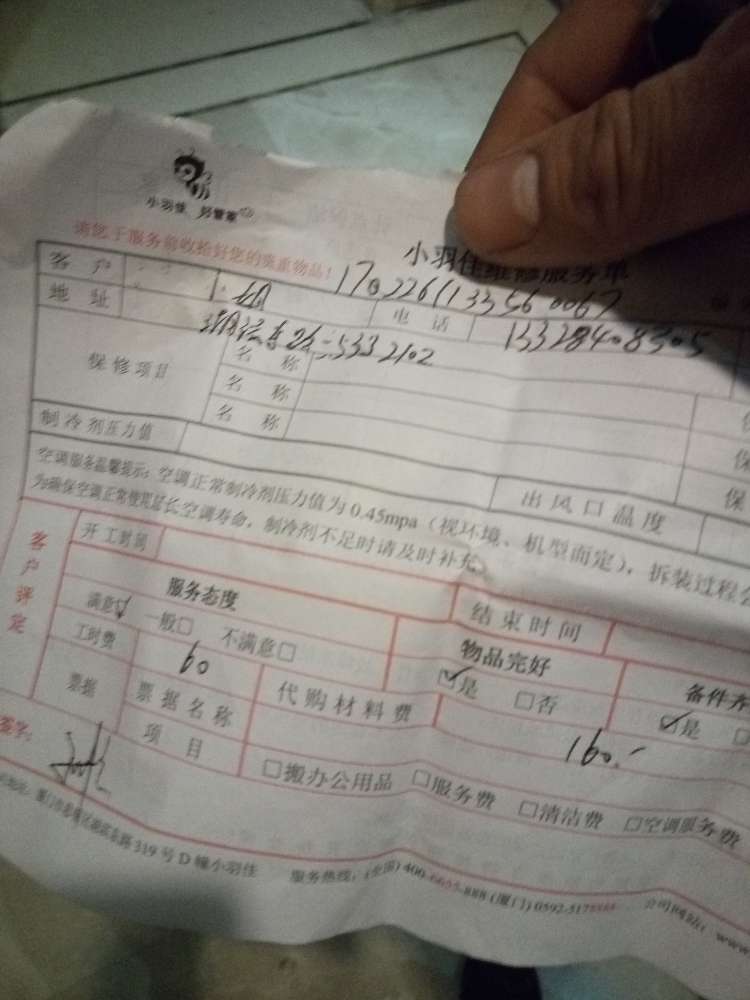 小羽佳 好管家
小羽佳维修服务单
请您于服务前收拾好您的贵重物品！
客户
170226113356 0067
地址
电话 13328408305
2102
保修项目 名称
名称
名称
制冷剂压力值 出风口温度
空调服务温馨提示：空调正常制冷剂压力值为0.45mpa（视环境、机型而定），拆装过程会
为确保空调正常使用延长空调寿命，制冷剂不足时请及时补充。
客户评定
开工时间 结束时间
服务态度 物品完好 备件齐
满意☑ 一般□ 不满意□ ☑是 □否 ☑是 □
工时费 60 代购材料费 160.-
票据 票据名称
项目 □搬办公用品 □服务费 □清洁费 □空调服务费
签字：
319号D幢小羽佳 服务热线：(全国) 400-6655-888 (厦门) 0592-5178888 公司网站：www